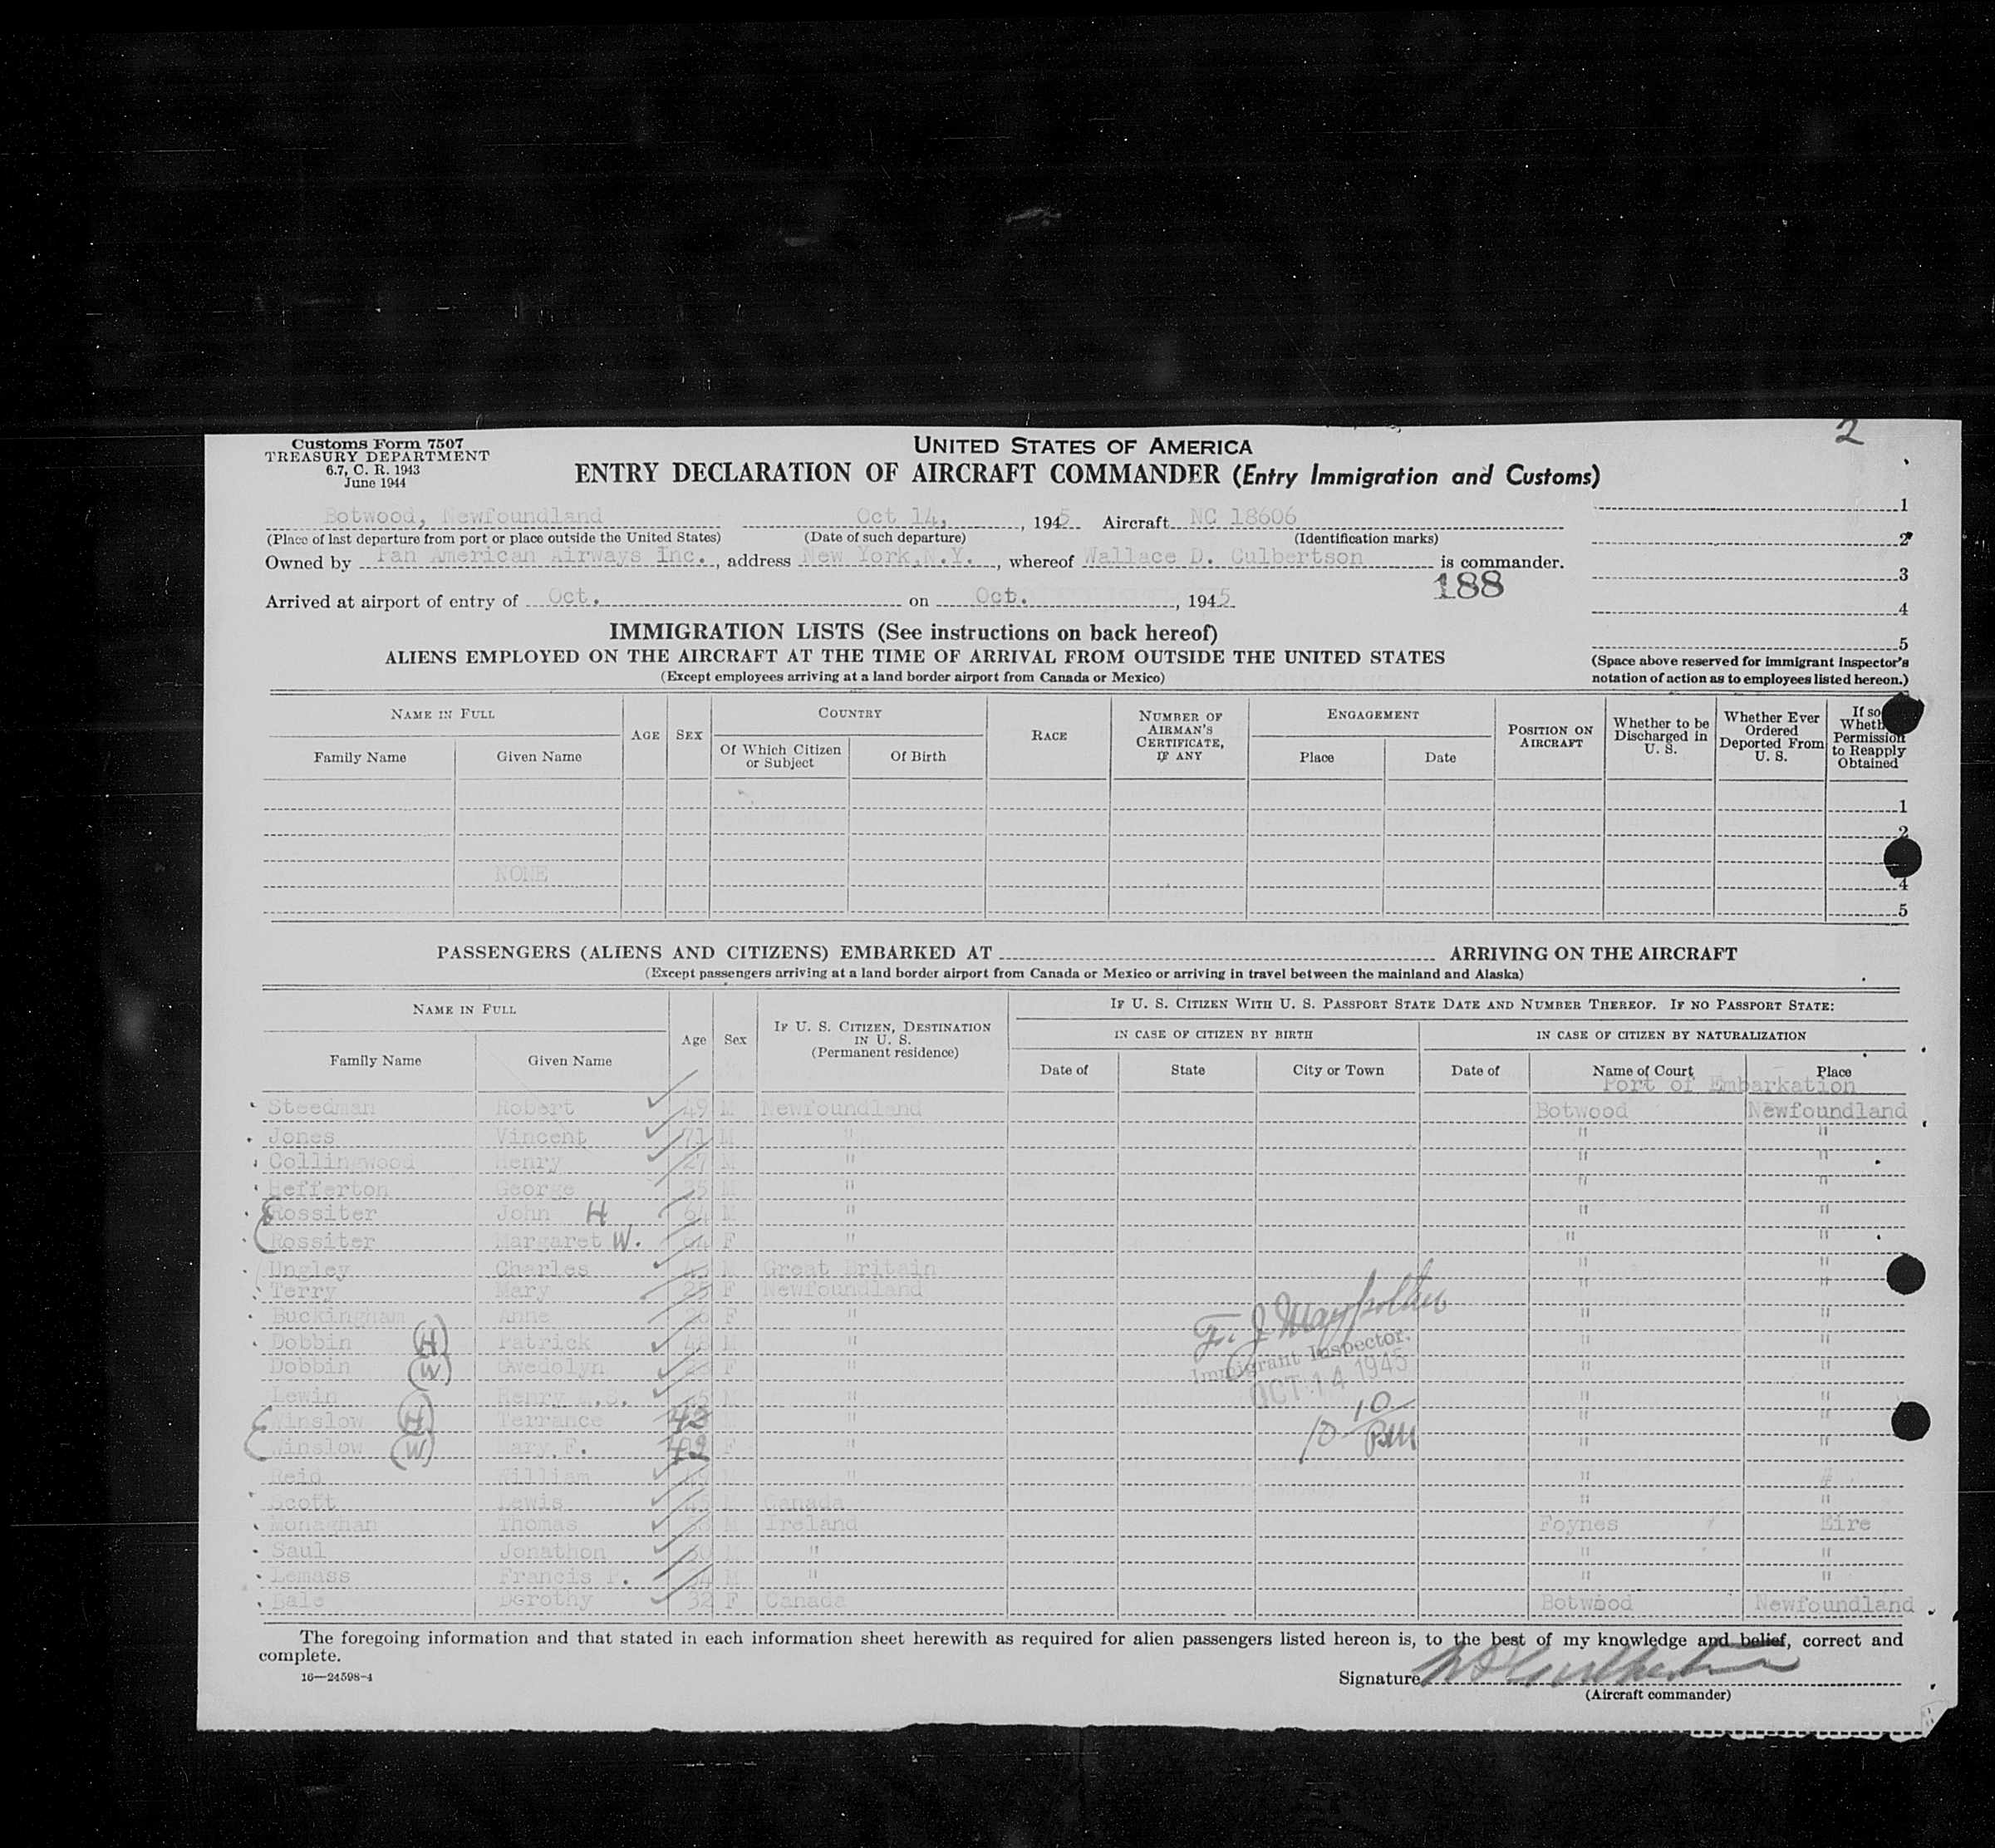 2
Customs Form 7507
TREASURY DEPARTMENT
6.7, C. R. 1943
June 1944
UNITED STATES OF AMERICA
ENTRY DECLARATION OF AIRCRAFT COMMANDER (Entry Immigration and Customs)
Botwood, Newfoundland Oct 14, , 1945 Aircraft NC 18606
(Place of last departure from port or place outside the United States) (Date of such departure) (Identification marks)
Owned by Pan American Airways Inc. , address New York,N.Y. , whereof Wallace D. Culbertson is commander.
188
Arrived at airport of entry of Oct. on Oct. , 1945
1
2
3
4
5
(Space above reserved for immigrant inspector's notation of action as to employees listed hereon.)
IMMIGRATION LISTS (See instructions on back hereof)
ALIENS EMPLOYED ON THE AIRCRAFT AT THE TIME OF ARRIVAL FROM OUTSIDE THE UNITED STATES
(Except employees arriving at a land border airport from Canada or Mexico)
NAME IN FULL AGE SEX COUNTRY RACE NUMBER OF AIRMAN'S CERTIFICATE, IF ANY ENGAGEMENT POSITION ON AIRCRAFT Whether to be Discharged in U. S. Whether Ever Ordered Deported From U. S. If so Permission to Reapply Obtained
Family Name Given Name Of Which Citizen or Subject Of Birth Place Date
1
2
NONE
4
5
PASSENGERS (ALIENS AND CITIZENS) EMBARKED AT ARRIVING ON THE AIRCRAFT
(Except passengers arriving at a land border airport from Canada or Mexico or arriving in travel between the mainland and Alaska)
NAME IN FULL Age Sex IF U. S. CITIZEN, DESTINATION IN U. S. (Permanent residence) IF U. S. CITIZEN WITH U. S. PASSPORT STATE DATE AND NUMBER THEREOF. IF NO PASSPORT STATE:
IN CASE OF CITIZEN BY BIRTH IN CASE OF CITIZEN BY NATURALIZATION
Family Name Given Name Date of State City or Town Date of Name of Court Place
Port of Embarkation
Steedman Robert 49 M Newfoundland Botwood Newfoundland
Jones Vincent 71 M " " "
Collingwood Henry 27 M " " "
Hefferton George M " " "
Rossiter John H 64 M " " "
Rossiter Margaret W. F " " "
Ungley Charles M Great Britain " "
Terry Mary 25 F Newfoundland " "
Buckingham Anne 26 F " " "
Dobbin (H) Patrick M " " "
Dobbin (W) Gwedolyn F " " "
Lewin Henry M " " "
Winslow (H) Terrance 42 M " " "
Winslow (W) Mary F. 42 F " " "
Reid William M " " "
Scott Lewis M Canada " "
Monaghan Thomas M Ireland Foynes Eire
Saul Jonathon M " " "
Lemass Francis P. M " " "
Bale Dorothy 32 F Canada Botwood Newfoundland
Immigrant Inspector.
OCT 14 1945
10 10 PM
The foregoing information and that stated in each information sheet herewith as required for alien passengers listed hereon is, to the best of my knowledge and belief, correct and
complete.
16—24598-4
Signature
(Aircraft commander)